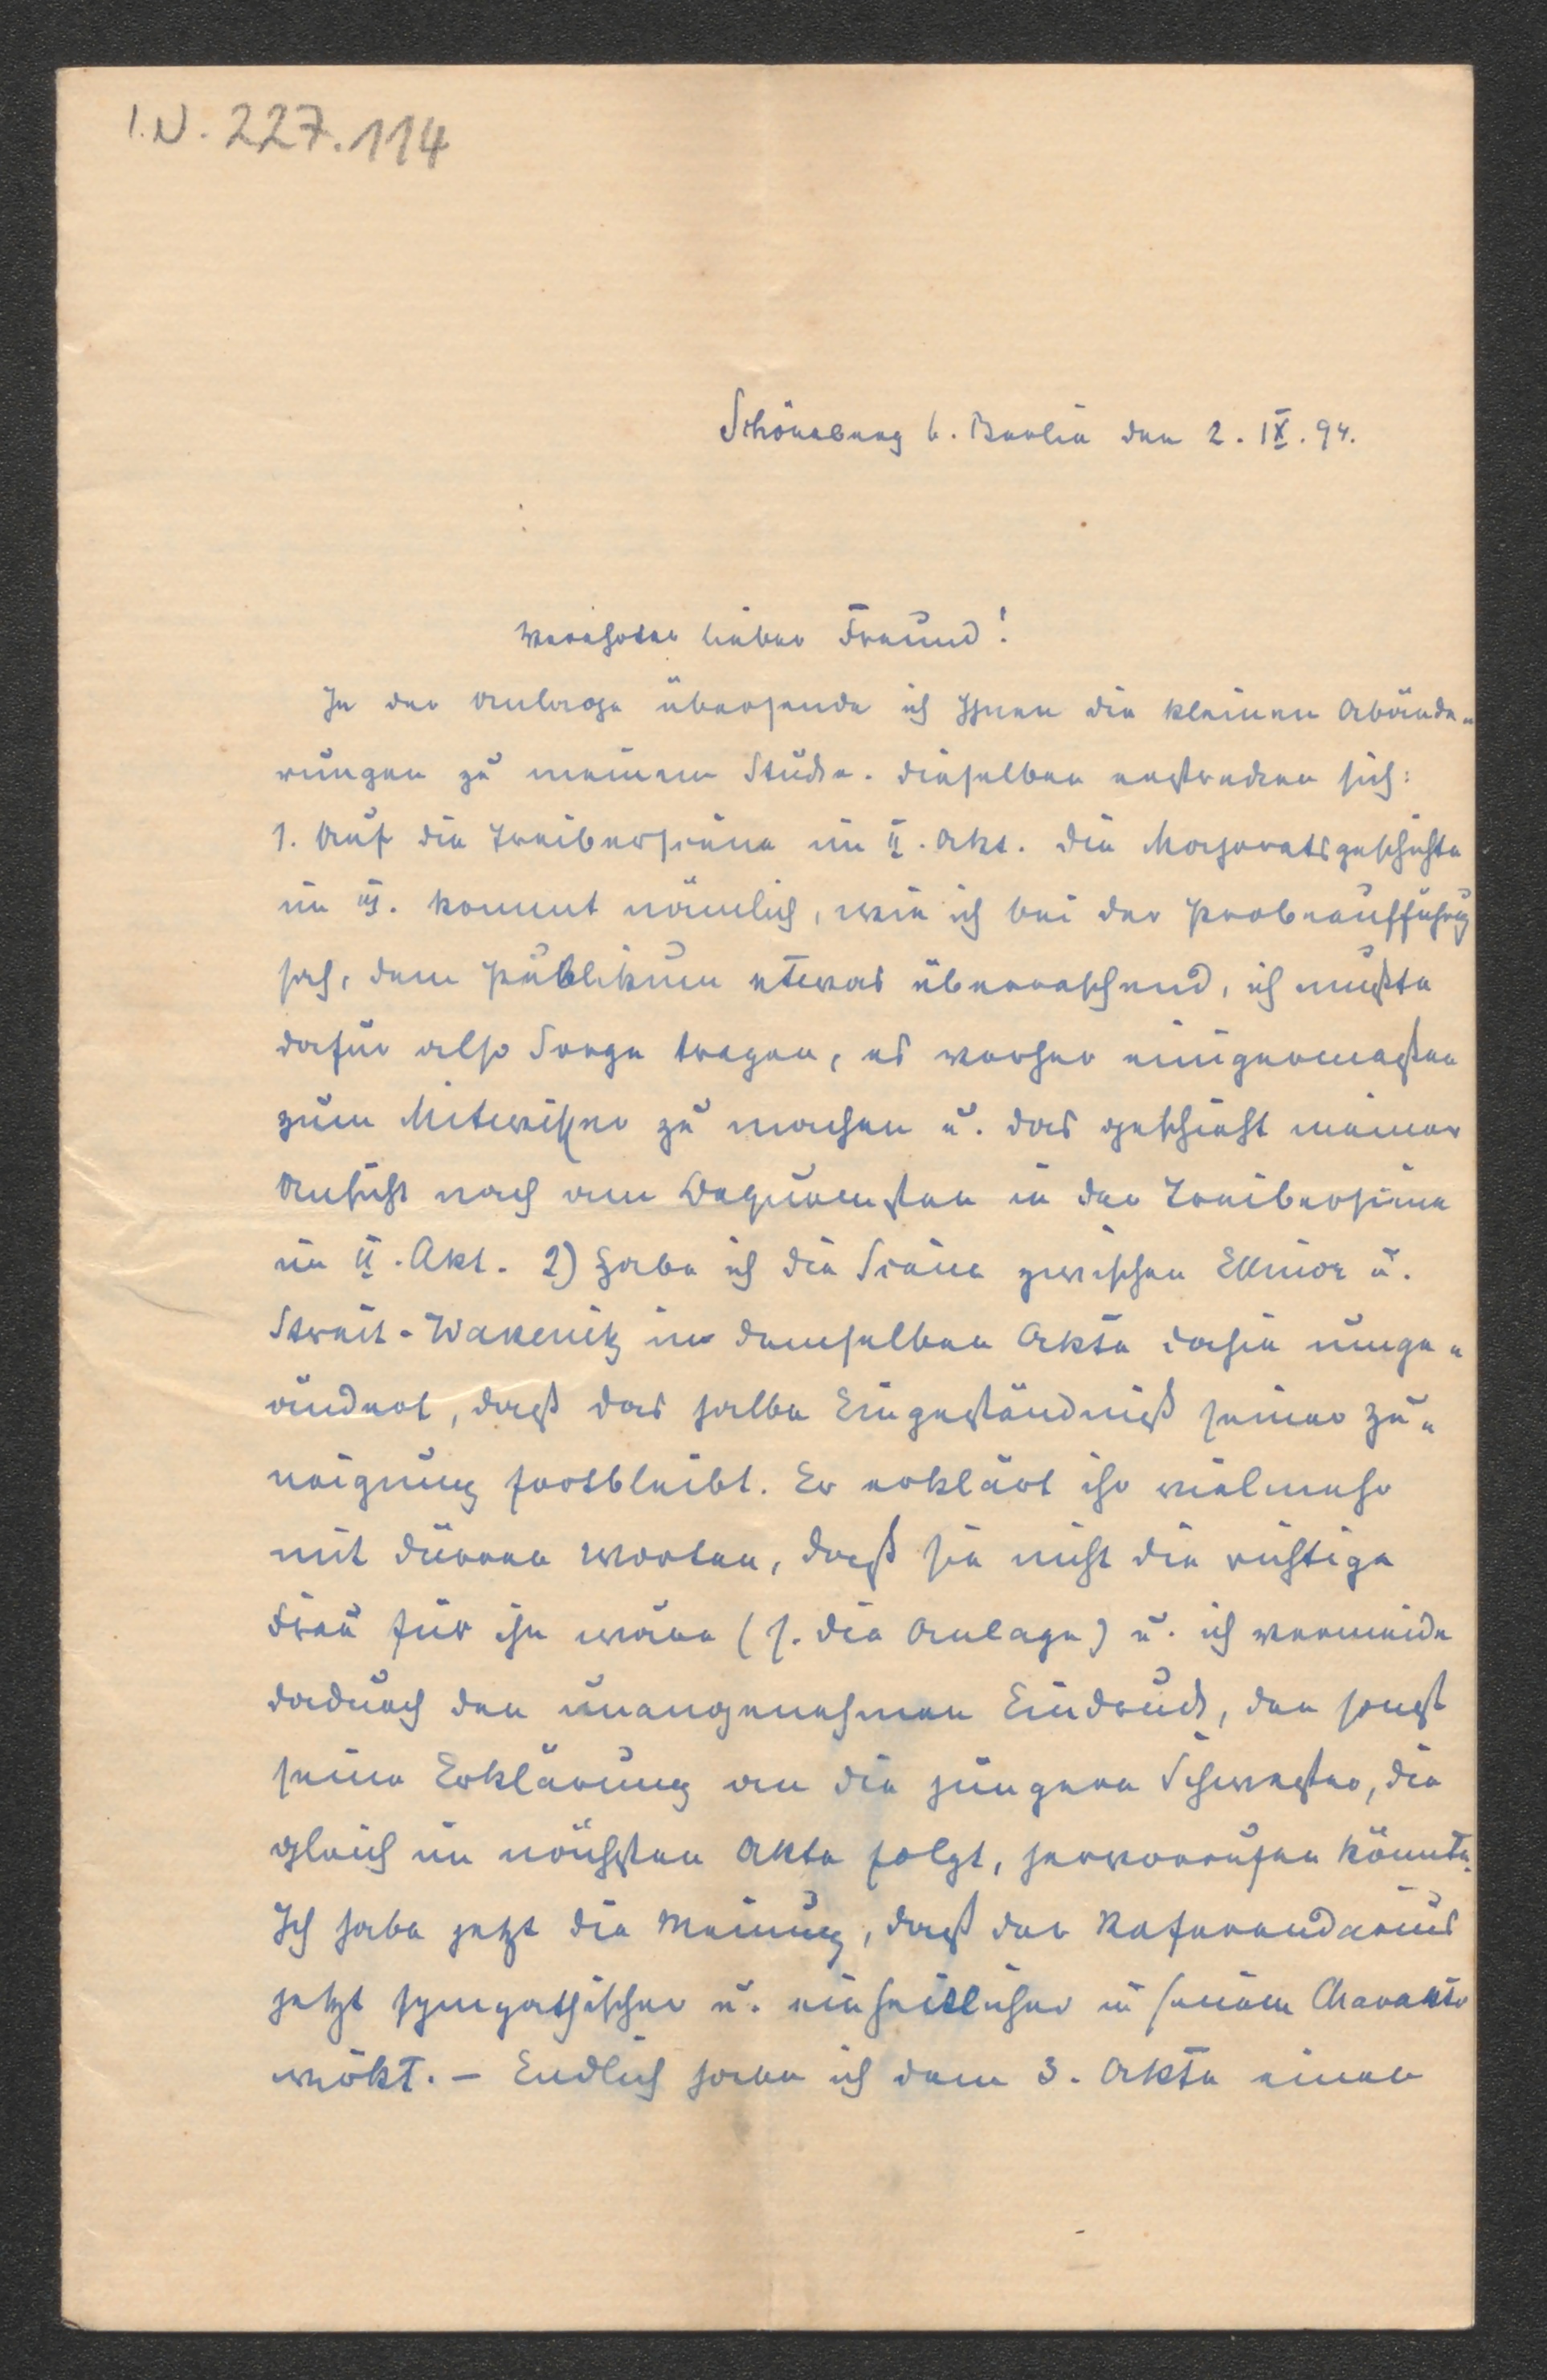 I.N. 227.114
Schöneberg b. Berlin den 2. IX. 94.
Verehrter lieber Freund!
In der Anlage übersende ich Ihnen die kleinen Abände-
rungen zu meinem Stücke. Dieselben erstrecken sich:
1. Auf die Treiberscene im II. Akt. Die Majoratsgeschichte
im III. kommt nämlich, wie ich bei der Probeaufführung
sah, dem Publikum etwas überraschend, ich mußte
dafür also Sorge tragen, es vorher einigermaßen
zum Mitwisser zu machen u. das geschieht meiner
Ansicht nach am Bequemsten in der Treiberscene
im II. Akt. 2) Habe ich die Scene zwischen Ellinor u.
Streit-Wakenitz im demselben Akte dahin umge-
ändert, daß das halbe Eingeständniß seiner Zu-
neigung fortbleibt. Er erklärt ihr vielmehr
mit dürren Worten, daß sie nicht die richtige
Frau für ihn wäre (s. die Anlage) u. ich vermeide
dadurch den unangenehmen Eindruck, den sonst
seine Erklärung an die jüngere Schwester, die
gleich im nächsten Akte folgt, hervorrufen könnte.
Ich habe jetzt die Meinung, daß der Referendarius
jetzt sympathischer u. einheitlicher in seinem Charakter
wirkt. – Endlich habe ich dem 3. Akte einen